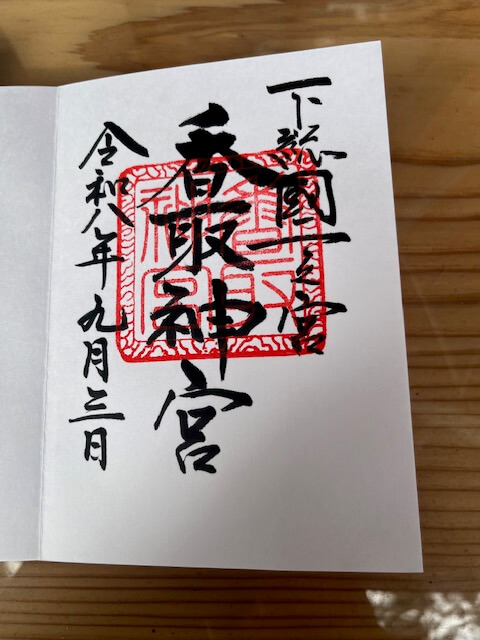 下総國一之宮
香取神宮
令和八年九月三日
香取神宮